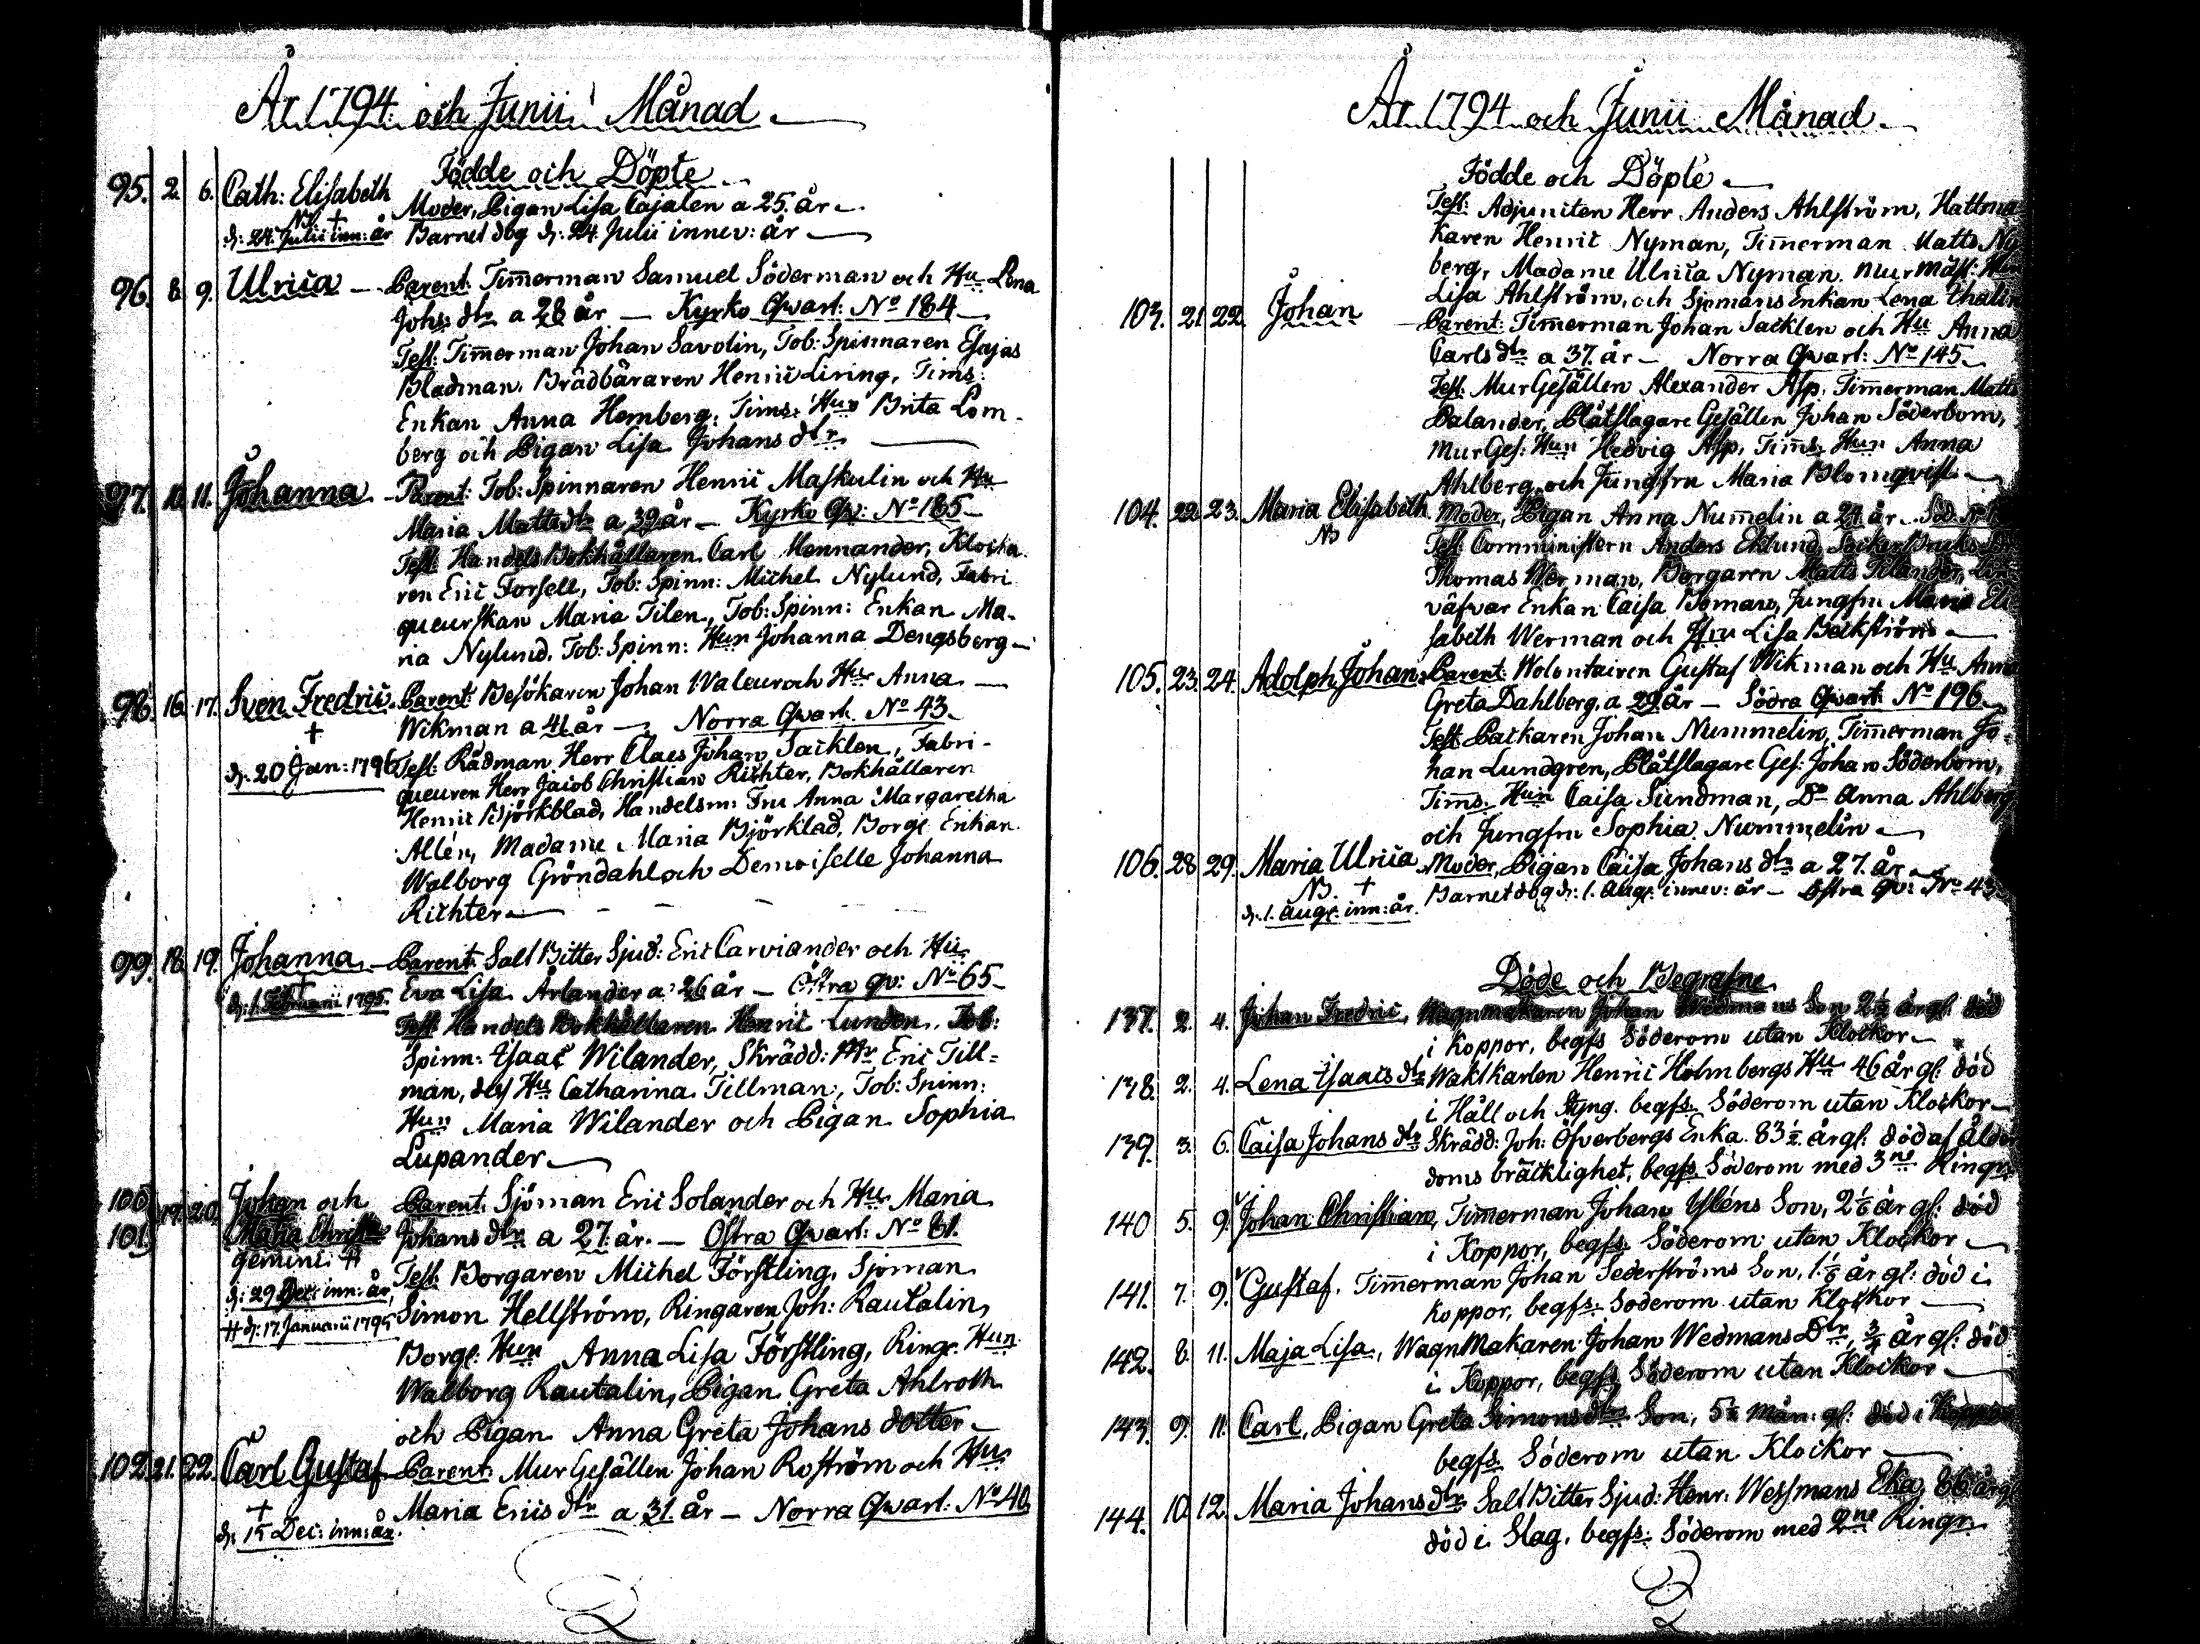 År 1794 och Junii Månad.
Födde och Döpte
95. 2. 6. Cath: Elisabeth Moder, Pigan Lisa Cajalen a 25 år
NB +
d: 24 Julii inn: år Barnet dog d: 24 Julii innev: år
96. 8. 9. Ulrica Parent: Timerman Samuel Söderman och Hu Lena
Johs dtr a 28 år — Kyrko Qwart: No 184
Test: Timerman Johan Savolin, Tob: Spinnaren Esajas
Bladman, Brädbäraren Henric Liring, Tims:
Enkan Anna Hemberg, Tims: Hun Brita Lom-
berg och Pigan Lisa Johans dtr
97. 10. 11. Johanna Parent: Tob: Spinnaren Henric Maskulin och Hu
Maria Matts dtr a 39 år — Kyrko Qv: No 185
Test: Handels Bokhållaren Carl Mennander, Klocka
ren Eric Forsell, Tob: Spinn: Michel Nylund, Fabri
queurskan Maria Tilen, Tob: Spinn: Enkan Ma-
ria Nylund, Tob: Spinn: Hun Johanna Dengsberg
98. 16. 17. Sven Fredric Parent: Besökaren Johan Valeur och Hu Anna
+
Wikman a 41 år — Norra Qwart. No 43
d: 20 Jan: 1796 Test: Rådman Herr Claes Johan Sacklen, Fabri-
queuren Herr Jacob Christian Richter, Bokhållaren
Henric Björkblad, Handelsm: Fru Anna Margaretha
Allén, Madame Maria Björklad, Borge Enkan
Walborg Gröndahl och Demoiselle Johanna
Richter
99. 18. 19. Johanna Parent: Salt Pitter Sjud: Eric Carviander och Hu
+
d: 1. Februarii 1795. Eva Lisa Arlander a 26 år — Östra Qv: No 65
Test: Handels Bokhållaren Henric Lunden, Tob:
Spinn: Isaac Wilander, Skrädd: Mr Eric Till=
man, dess Hu Catharina Tillman, Tob: Spinn:
Hun Maria Wilander och Pigan Sophia
Lupander
100. 19. 20. Johan och Parent: Sjöman Eric Solander och Hu Maria
101. Maria Christ: Johans dtr a 27 år. — Östra Qwart: No 81.
gemini. # Test: Borgaren Michel Förstling, Sjöman
d: 29 Dec: inn: år, Simon Hellström, Ringaren Joh: Rautalin,
# d: 17 Januarii 1795 Borge Hun Anna Lisa Förstling, Ringr: Hun
Walborg Rautalin, Pigan Greta Ahlroth
och Pigan Anna Greta Johans dotter
102. 21. 22. Carl Gustaf Parent: Mur Gesällen Johan Roström och Hu
+
d: 15 Dec: inn: år. Maria Erics dtr a 31 år — Norra Qwart: No 40
År 1794 och Junii Månad
Födde och Döpte
Test: Adjuncten Herr Anders Ahlström, Hattma
karen Henric Nyman, Timerman Matts Ny
berg, Madame Ulrica Nyman, Mur Mäst: Hu
Lisa Ahlström, och Sjömans Enkan Lena Thalin
103. 21. 22. Johan Parent: Timerman Johan Sacklen och Hu Anna
Carls dtr a 37 år — Norra Qwart: No 145
Test: Mur Gesällen Alexander Asp, Timerman Matts
Palander, Plåtslagare Gesällen Johan Söderbom,
Mur Ges: Hun Hedvig Asp, Tims: Hun Anna
Ahlberg, och Jungfru Maria Blomqvist
104. 22. 23. Maria Elisabeth Moder, Pigan Anna Numelin a 24 år
NB
Test: Comministern Anders Eklund,
Thomas Werman, Borgaren Matts
väfvar Enkan Caisa Boman, Jungfru Maria Eli
sabeth Werman och Hu Lisa Beckström
105. 23. 24. Adolph Johan Parent: Wolontairen Gustaf Wikman och Hu Anna
Greta Dahlberg, a 29 år — Södra Qwart: No 196
Test: Packaren Johan Nummelin, Timerman Jo-
han Lundgren, Plåtslagare Ges: Johan Söderbom,
Tims: Hun Caisa Sundman, Do Anna Ahlberg
och Jungfru Sophia Nummelin
106. 28. 29. Maria Ulrica Moder, Pigan Caisa Johans dtr a 27 år
NB. +
d: 1. Aug: inn: år. Barnet dog d: 1. Aug: innev: år — Östra Qv: No 43
Döde och Begrafne
137. 2. 4. Johan Fredric, Wagnmakaren Johan Wedmans Son 2½ år gl: död
i Koppor, begfs Söderom utan Klockor
138. 2. 4. Lena Isaacs dtr Waktkarlen Henric Holmbergs Hu 46 år gl: död
i Håll och Styng. begfs. Söderom utan Klockor
139. 3. 6. Caisa Johans dtr Skrädd: Joh: Öfverbergs Enka 83½ år gl: död af Ålder
doms bräcklighet, begfs. Söderom med 3ne Ringr
140 5. 9. Johan Christian, Timerman Johan Ysléns Son, 2⅙ år gl: död
i Koppor, begfs. Söderom utan Klockor
141. 7. 9. Gustaf. Timerman Johan Sederströms Son, 1⅙ år gl: död i
koppor, begfs: Söderom utan Klockor
142. 8. 11. Maja Lisa, Wagn Makaren Johan Wedmans Dtr, ¾ år gl: död
i Koppor, begfs Söderom utan Klockor
143. 9. 11. Carl, Pigan Greta Simons dtrs Son, 5½ mån: gl: död i Koppor
begfs. Söderom utan Klockor
144. 10. 12. Maria Johans dtr Salt Pitter Sjud: Henr: Wessmans Eka, 66 år gl
död i Slag, begfs. Söderom med 2ne Ringr